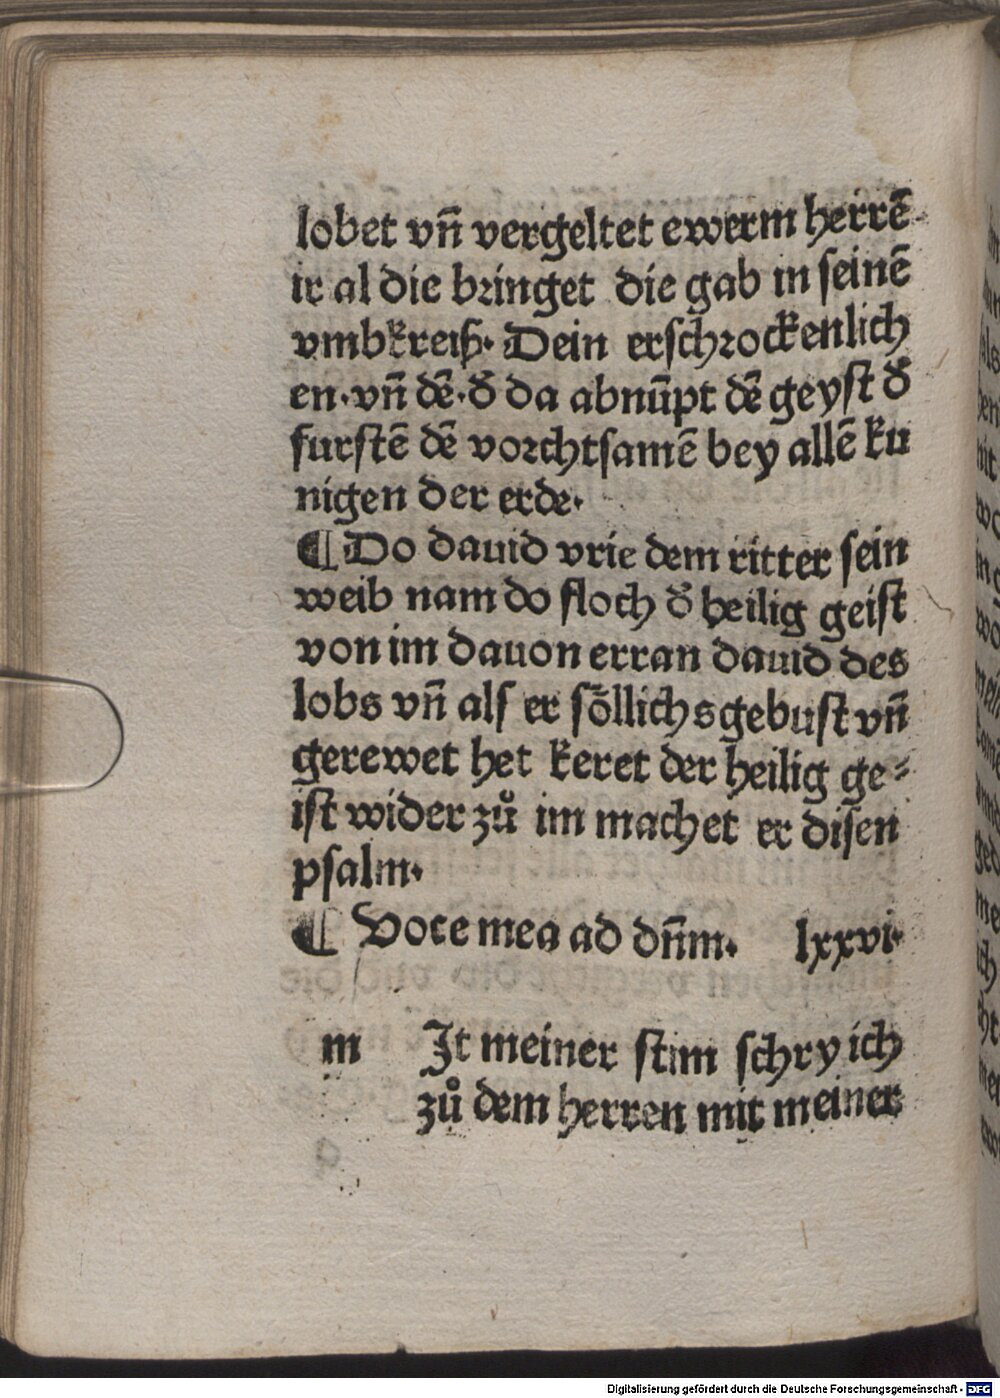 lobet vn̄ vergeltet ewerm herrē
ir al die bringet die gab in seinē
vmbkreiß. Dein erschrockenlich
en. vn̄ dē. d̛ da abnūpt dē geyst d̛
furstē dē vorchtsamē bey allē ku
nigen der erde.
¶ Do dauid vrie dem ritter sein
weib nam do floch d̛ heilig geist
von im dauon erran dauid des
lobs vn̄ als er söllichs gebust vn̄
gerewet het keret der heilig ge⸗
ist wider zů im machet er disen
psalm.
¶ Voce mea ad dn̄m. lxxvi.
m It meiner stim schry ich
zů dem herren mit meiner
Digitalisierung gefördert durch die Deutsche Forschungsgemeinschaft - DFG